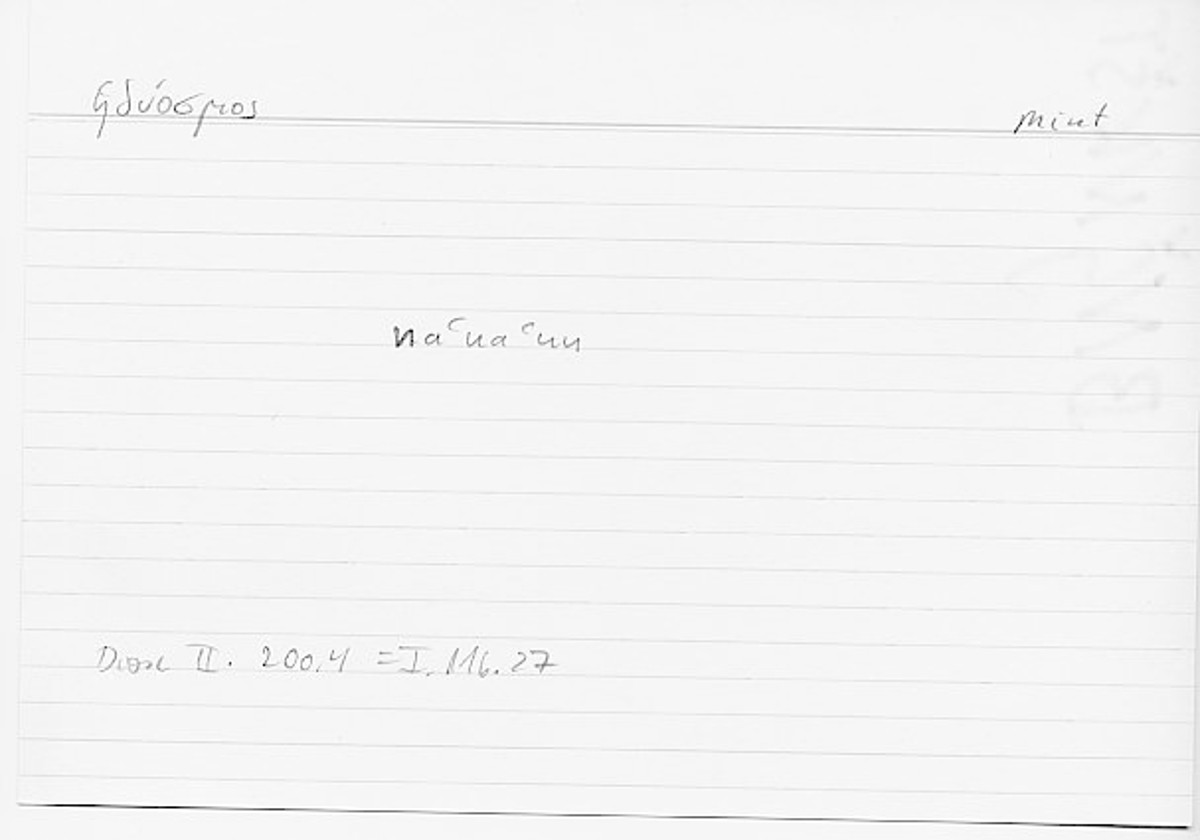 ἡδύοσμος mint
naʿnaʿun
Diosc II. 200.4 = I. 116.27